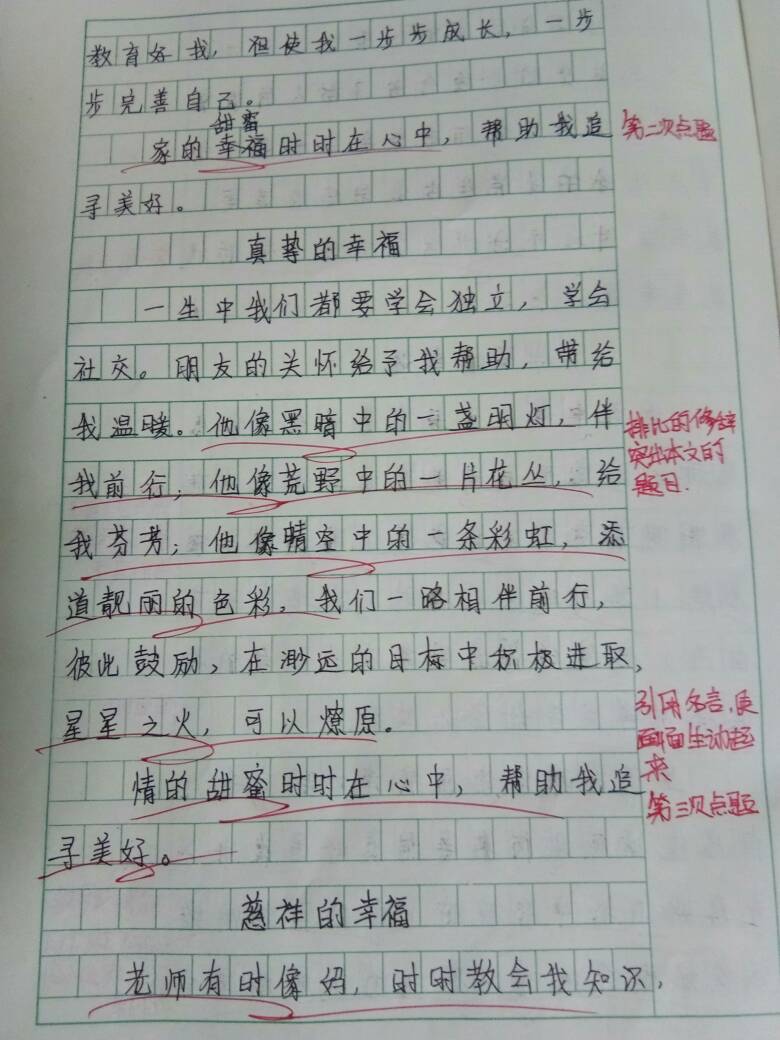 教育好我，但使我一步步成长，一步
步完善自己。
甜蜜
家的幸福时时在心中，帮助我追
第二次点题
寻美好。
真挚的幸福
一生中我们都要学会独立，学会
社交。朋友的关怀给予我帮助，带给
我温暖。他像黑暗中的一盏明灯，伴
我前行；他像荒野中的一片花丛，给
排比的修辞
突出本文的
题目.
我芬芳；他像晴空中的一条彩虹，添
道靓丽的色彩，我们一路相伴前行，
彼此鼓励，在渺远的目标中积极进取，
星星之火，可以燎原。
引用名言，使
画面生动起
来
情的甜蜜时时在心中，帮助我追
第三次点题
寻美好。
慈祥的幸福
老师有时像妈，时时教会我知识，